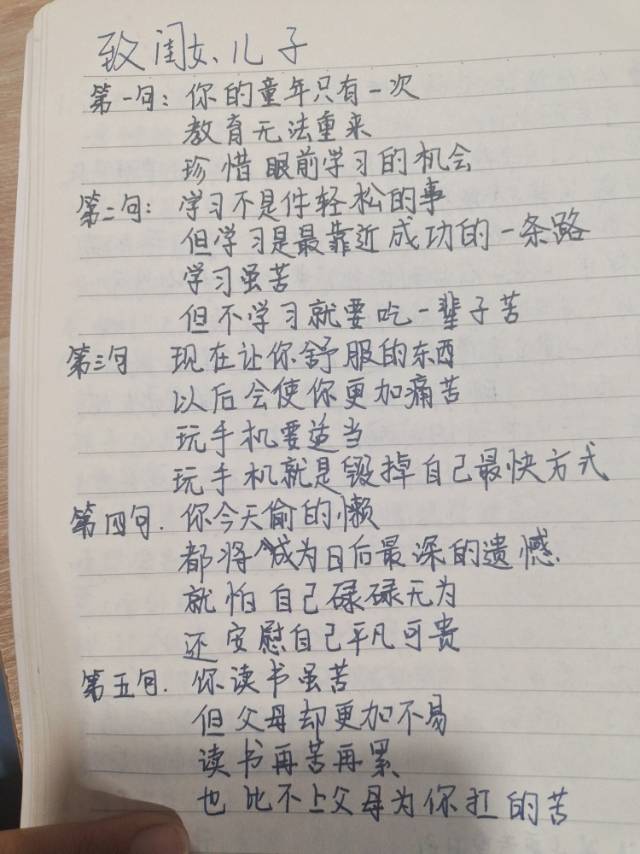 致闺女、儿子
第一句：你的童年只有一次
教育无法重来
珍惜眼前学习的机会
第二句：学习不是件轻松的事
但学习是最靠近成功的一条路
学习虽苦
但不学习就要吃一辈子苦
第三句 现在让你舒服的东西
以后会使你更加痛苦
玩手机要适当
玩手机就是毁掉自己最快方式
第四句.你今天偷的懒
都将成为日后最深的遗憾.
就怕自己碌碌无为
还安慰自己平凡可贵
第五句.你读书虽苦
但父母却更加不易
读书再苦再累
也比不上父母为你扛的苦